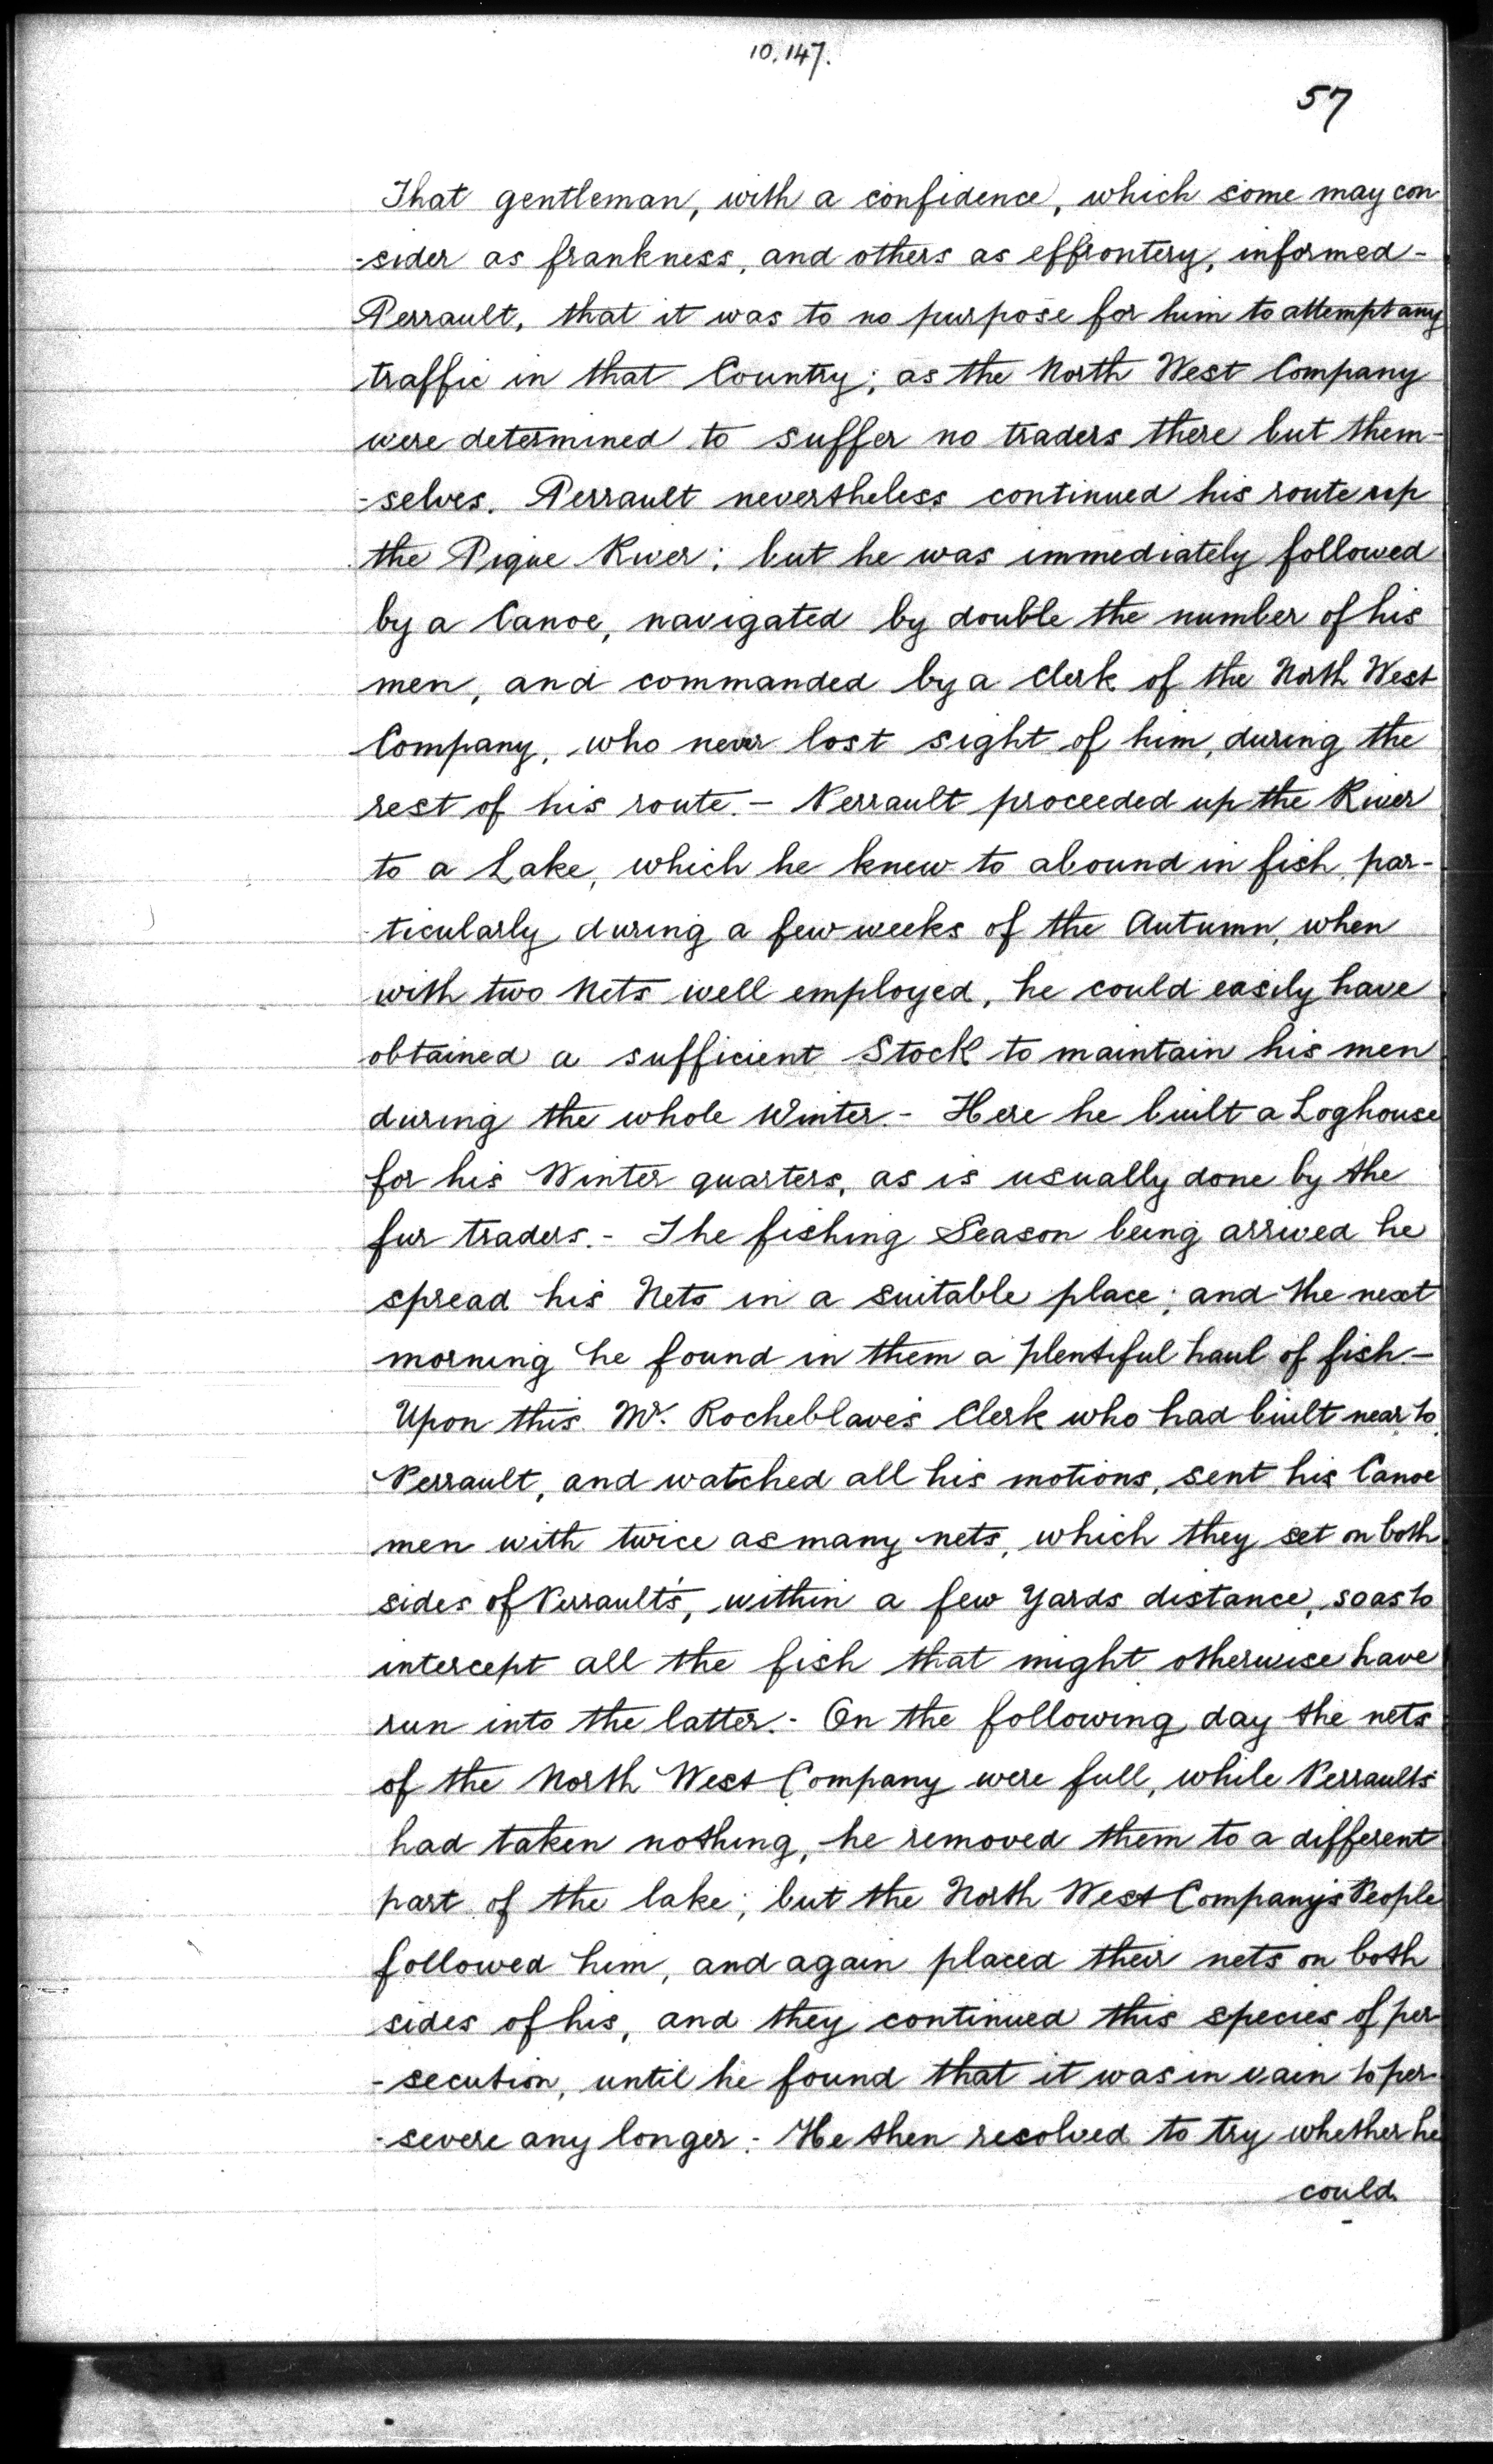 10,147.
57
That gentleman, with a confidence, which some may con
-sider as frankness, and others as effrontery, informed-
Perrault, that it was to no purpose for him to attempt any
traffic in that Country; as the North West Company
were determined to suffer no traders there but them-
-selves. Perrault nevertheless continued his route up
the Pique River; but he was immediately followed
by a Canoe, navigated by double the number of his
men, and commanded by a Clerk of the North West
Company, who never lost sight of him, during the
rest of his route.- Perrault proceeded up the River
to a Lake, which he knew to abound in fish, par-
ticularly during a few weeks of the Autumn, when
with two Nets well employed, he could easily have
obtained a sufficient Stock to maintain his men
during the whole Winter.- Here he built a Loghouse
for his Winter quarters, as is usually done by the
fur traders.- The fishing Season being arrived he
spread his Nets in a suitable place; and the next
morning he found in them a plentiful haul of fish.-
Upon this Mr. Rocheblave's Clerk who had built near to
Perrault, and watched all his motions, sent his Canoe
men with twice as many nets, which they set on both
sides of Perrault's, within a few Yards distance, so as to
intercept all the fish that might otherwise have
run into the latter.- On the following day the nets
of the North West Company were full, while Perraults
had taken nothing, he removed them to a different
part of the lake; but the North West Company's People
followed him, and again placed their nets on both
sides of his, and they continued this species of per-
-secution, until he found that it was in vain to per-
-severe any longer.- He then resolved to try whether he
could